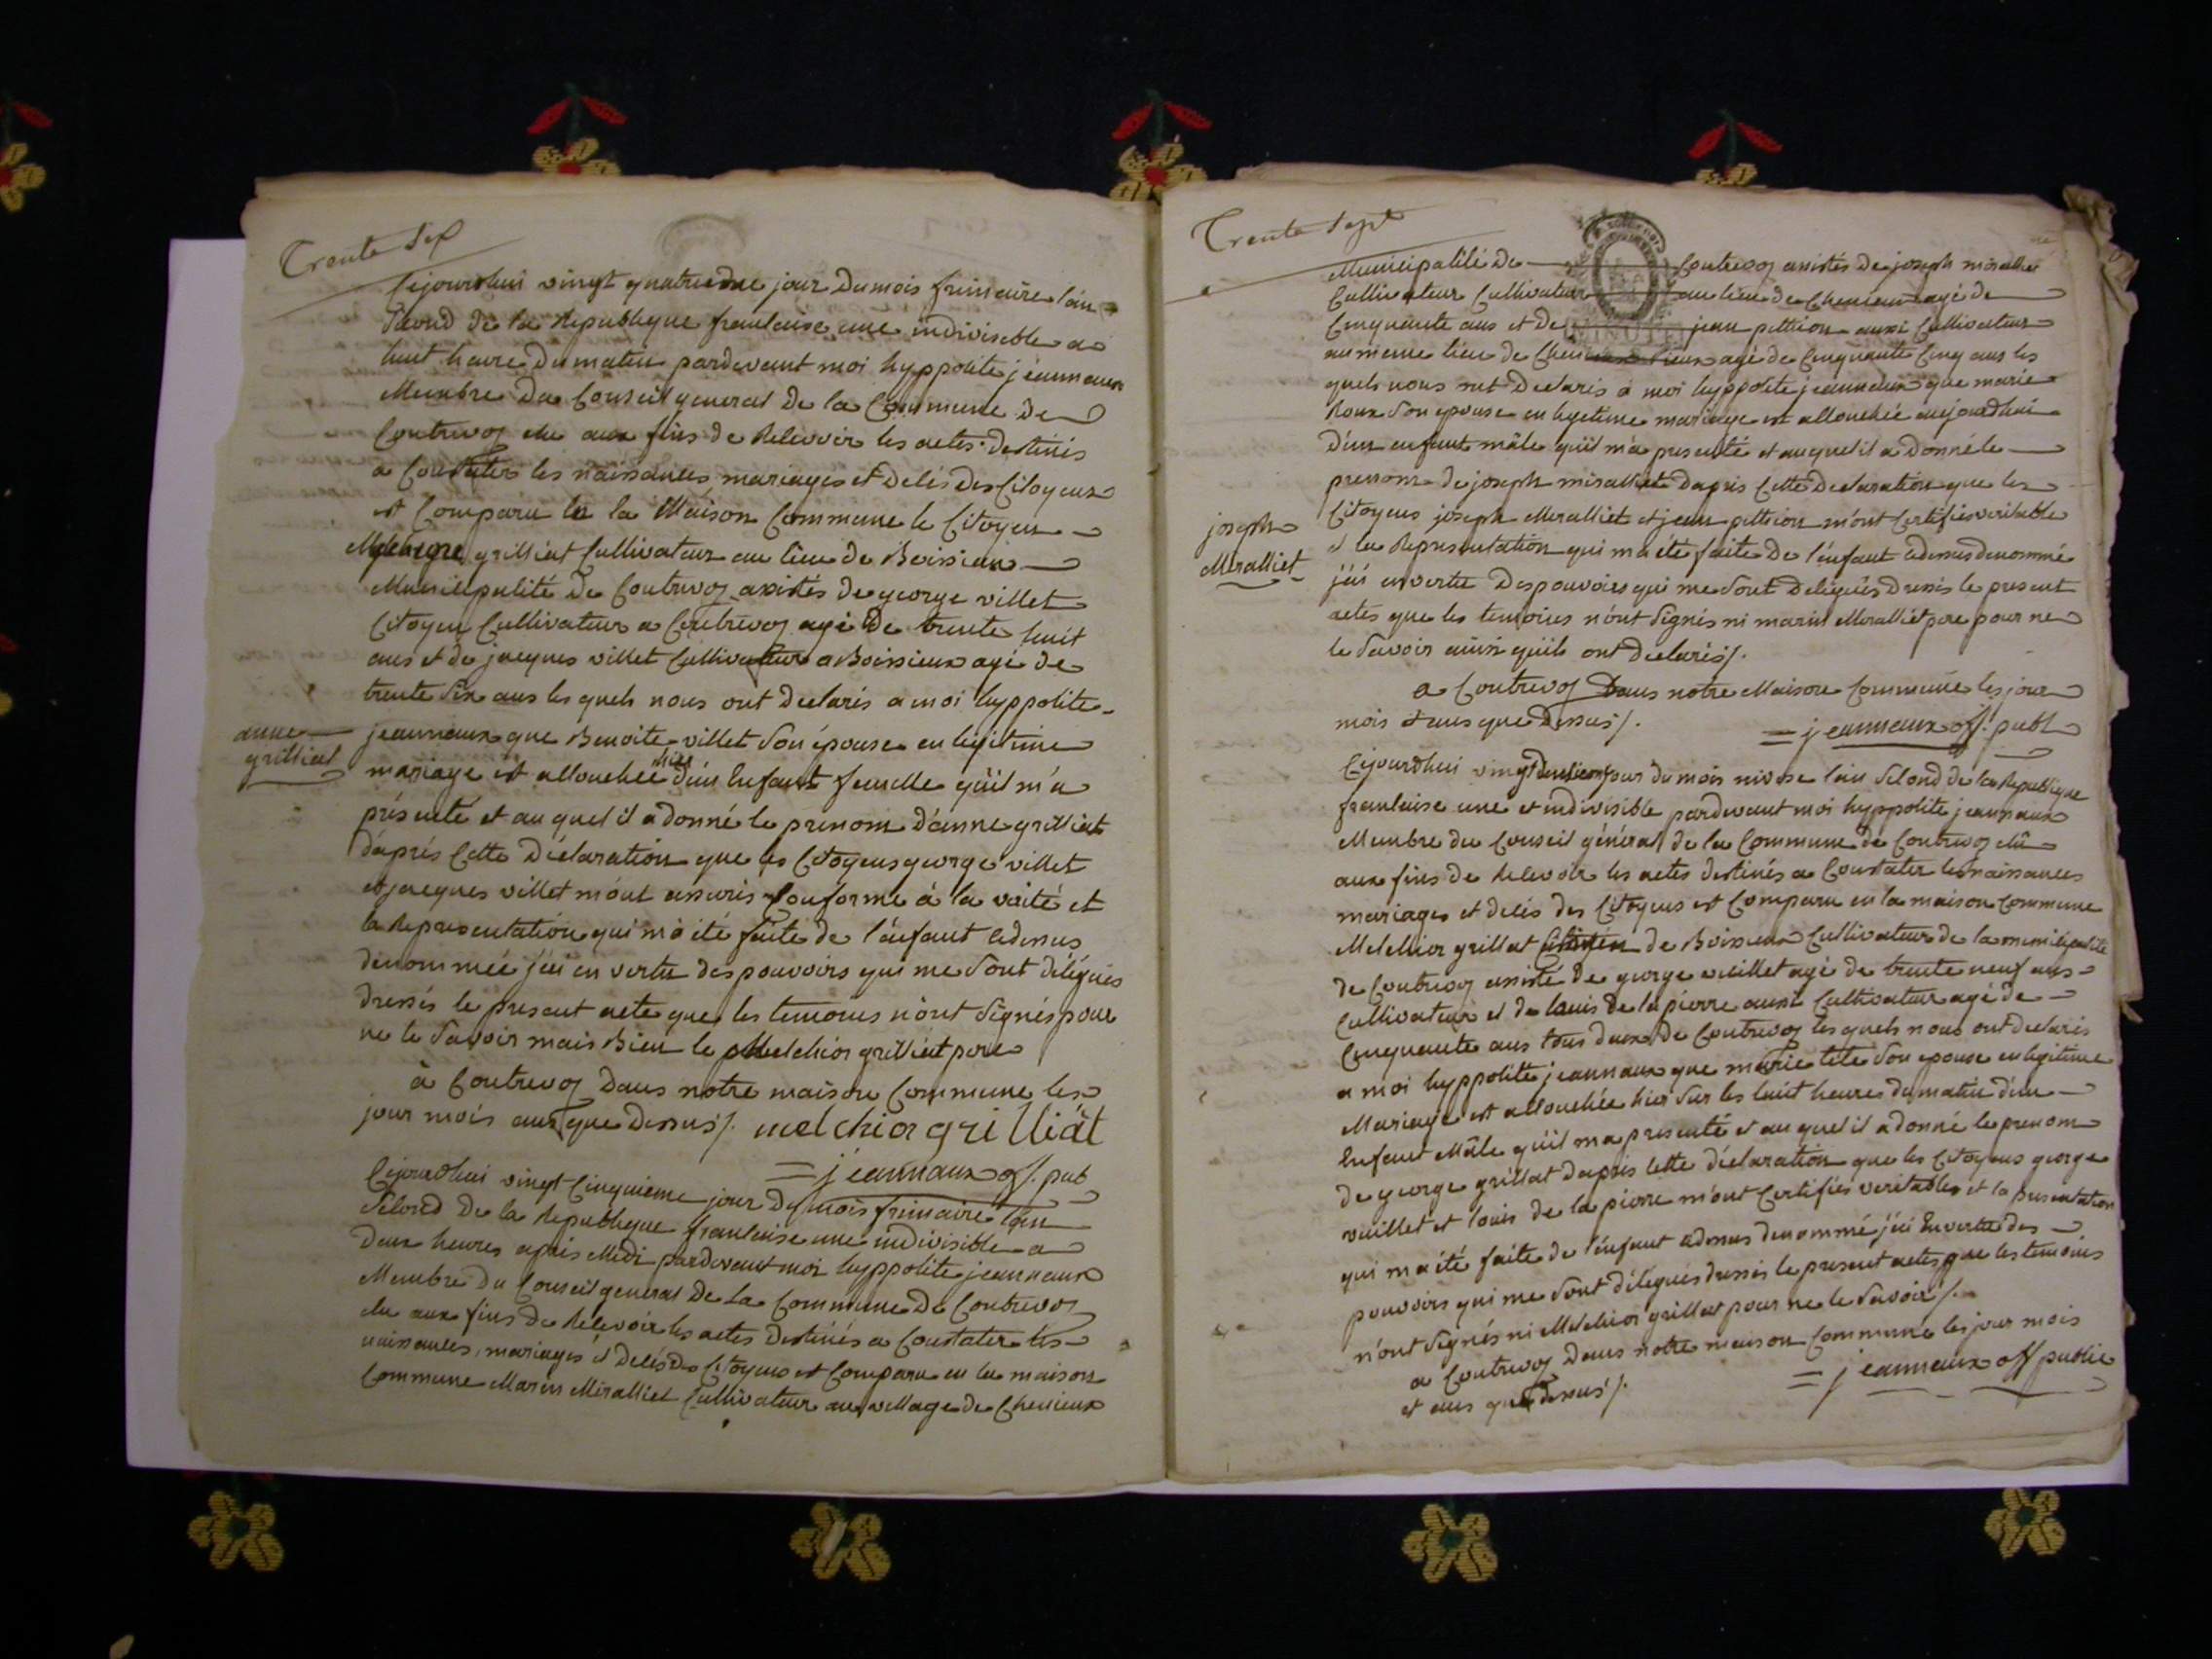 Trente six
Cejourdhui vingt quatrieme jour du mois frimaire l'an
second de la Republique francaise une indivisible a
huit heure du matin pardevant moi hyppolite jeannaux
Membre du Conseil general de la Commune de
Contrevoz elu aux fins de Recevoir les actes destinés
a Constater les naissances mariages et decés des Citoyens
est Comparu en la Maison Commune le Citoyen
Melchior grilliat Cultivateur au lieu de Boissieux
Municipalité de Contrevoz assistés de george villet
Citoyen Cultivateur a Contrevoz agé de trente huit
ans et de jacques villet Cultivateur a Boissieux agé de
trente six ans les quels nous ont declarés a moi hyppolite
anne
grilliat
jeannaux que Benoite villet son épouse en légitime
mariage est allouchée hier d'un Enfant femelle qu'il m'a
présenté et au quel il a donné le prenom d'anne grilliat
d'aprés Cette Déclaration que les Citoyens george villet
et jacques villet m'ont assurés Conforme à la vérité et
la Representation qui m'a été faite de l'enfant cidessus
denommée j'ai en vertu des pouvoirs qui me sont délégués
dressés le present acte que les temoins n'ont signés pour
ne le savoir mais bien le Melchior grilliat pere
à Contrevoz Dans notre maison Commune les
jour mois ans que dessus /. melchior grilliat
= jeannaux off. pub
Cejourdhui vingt Cinquieme jour du mois frimaire l'an
second de la Republique francaise une indivisible a
Deux heures aprés Midi pardevant moi hyppolite jeannaux
Membre du Conseil general de la Commune de Contrevoz
elu aux fins de Recevoir les actes destinés a Constater les
naissances, mariages et decés des Citoyens est Comparu en la maison
Commune Marin Miralliet Cultivateur au village de Chenieux
Trente sept
Municipalité de Contrevoz assistés de joseph miralliet
Cultivateur Cultivateur au lieu de Chenieux agé de
Cinquante ans et de jean pettion aussi Cultivateur
au meme lieu de Chenieux agé de Cinquante Cinq ans les
quels nous ont declarés a moi hyppolite jeannaux que marie
Roux son epouse en legitime mariage est allouchée aujourdhui
D'un enfant mâle qu'il m'a presenté et auquel il a donné le
prenom de joseph miralliet Dapris Cette Declaration que les
joseph
Miralliet
Citoyens joseph Miralliet et jean pettion m'ont Certifiés veritable
et la Representation qui m'a été faite de l'enfant cidessus denommé
j'ai en vertu Des pouvoirs qui me sont Delegués Dressés le present
actes que les temoins n'ont signés ni marin Miralliet pere pour ne
le savoir ainsi qu'ils ont declarés /.
a Contrevoz Dans notre Maison Commune les jour
mois et ans que dessus /.
= jeannaux off. publ
Cejourdhui vingt deuxieme jour du mois nivose l'an second de la Republique
francaise une et indivisible pardevant moi hyppolite jeannaux
Membre du Conseil général de la Commune de Contrevoz élu
aux fins de Recevoir les actes destinés a Constater les naissances
mariages et decés des Citoyens est Comparu en la maison Commune
Melchior grillat Citoyen de Boissieux Cultivateur de la municipalité
de Contrevoz assisté de george vuillet agé de trente neuf ans
Cultivateur et de louis de la pierre aussi Cultivateur agé de
Cinquante ans tous deux de Contrevoz les quels nous ont declarés
a moi hyppolite jeannaux que marie tete son epouse en legitime
Mariage est allouchée hier sur les huit heures du matin d'un
Enfant Mâle qu'il m'a presenté et au quel il a donné le prenom
de george grillat Dapris Cette déclaration que les Citoyens george
vuillet et louis de la pierre m'ont Certifiés veritables et la presentation
qui m'a été faite de l'enfant cidessus denommé j'ai En vertu des
pouvoirs qui me sont délégués dressés le present actes que les temoins
n'ont signés ni Melchior grillat pour ne le savoir /.
a Contrevoz Dans notre maison Commune les jour mois
et ans que dessus /.
= jeannaux off public